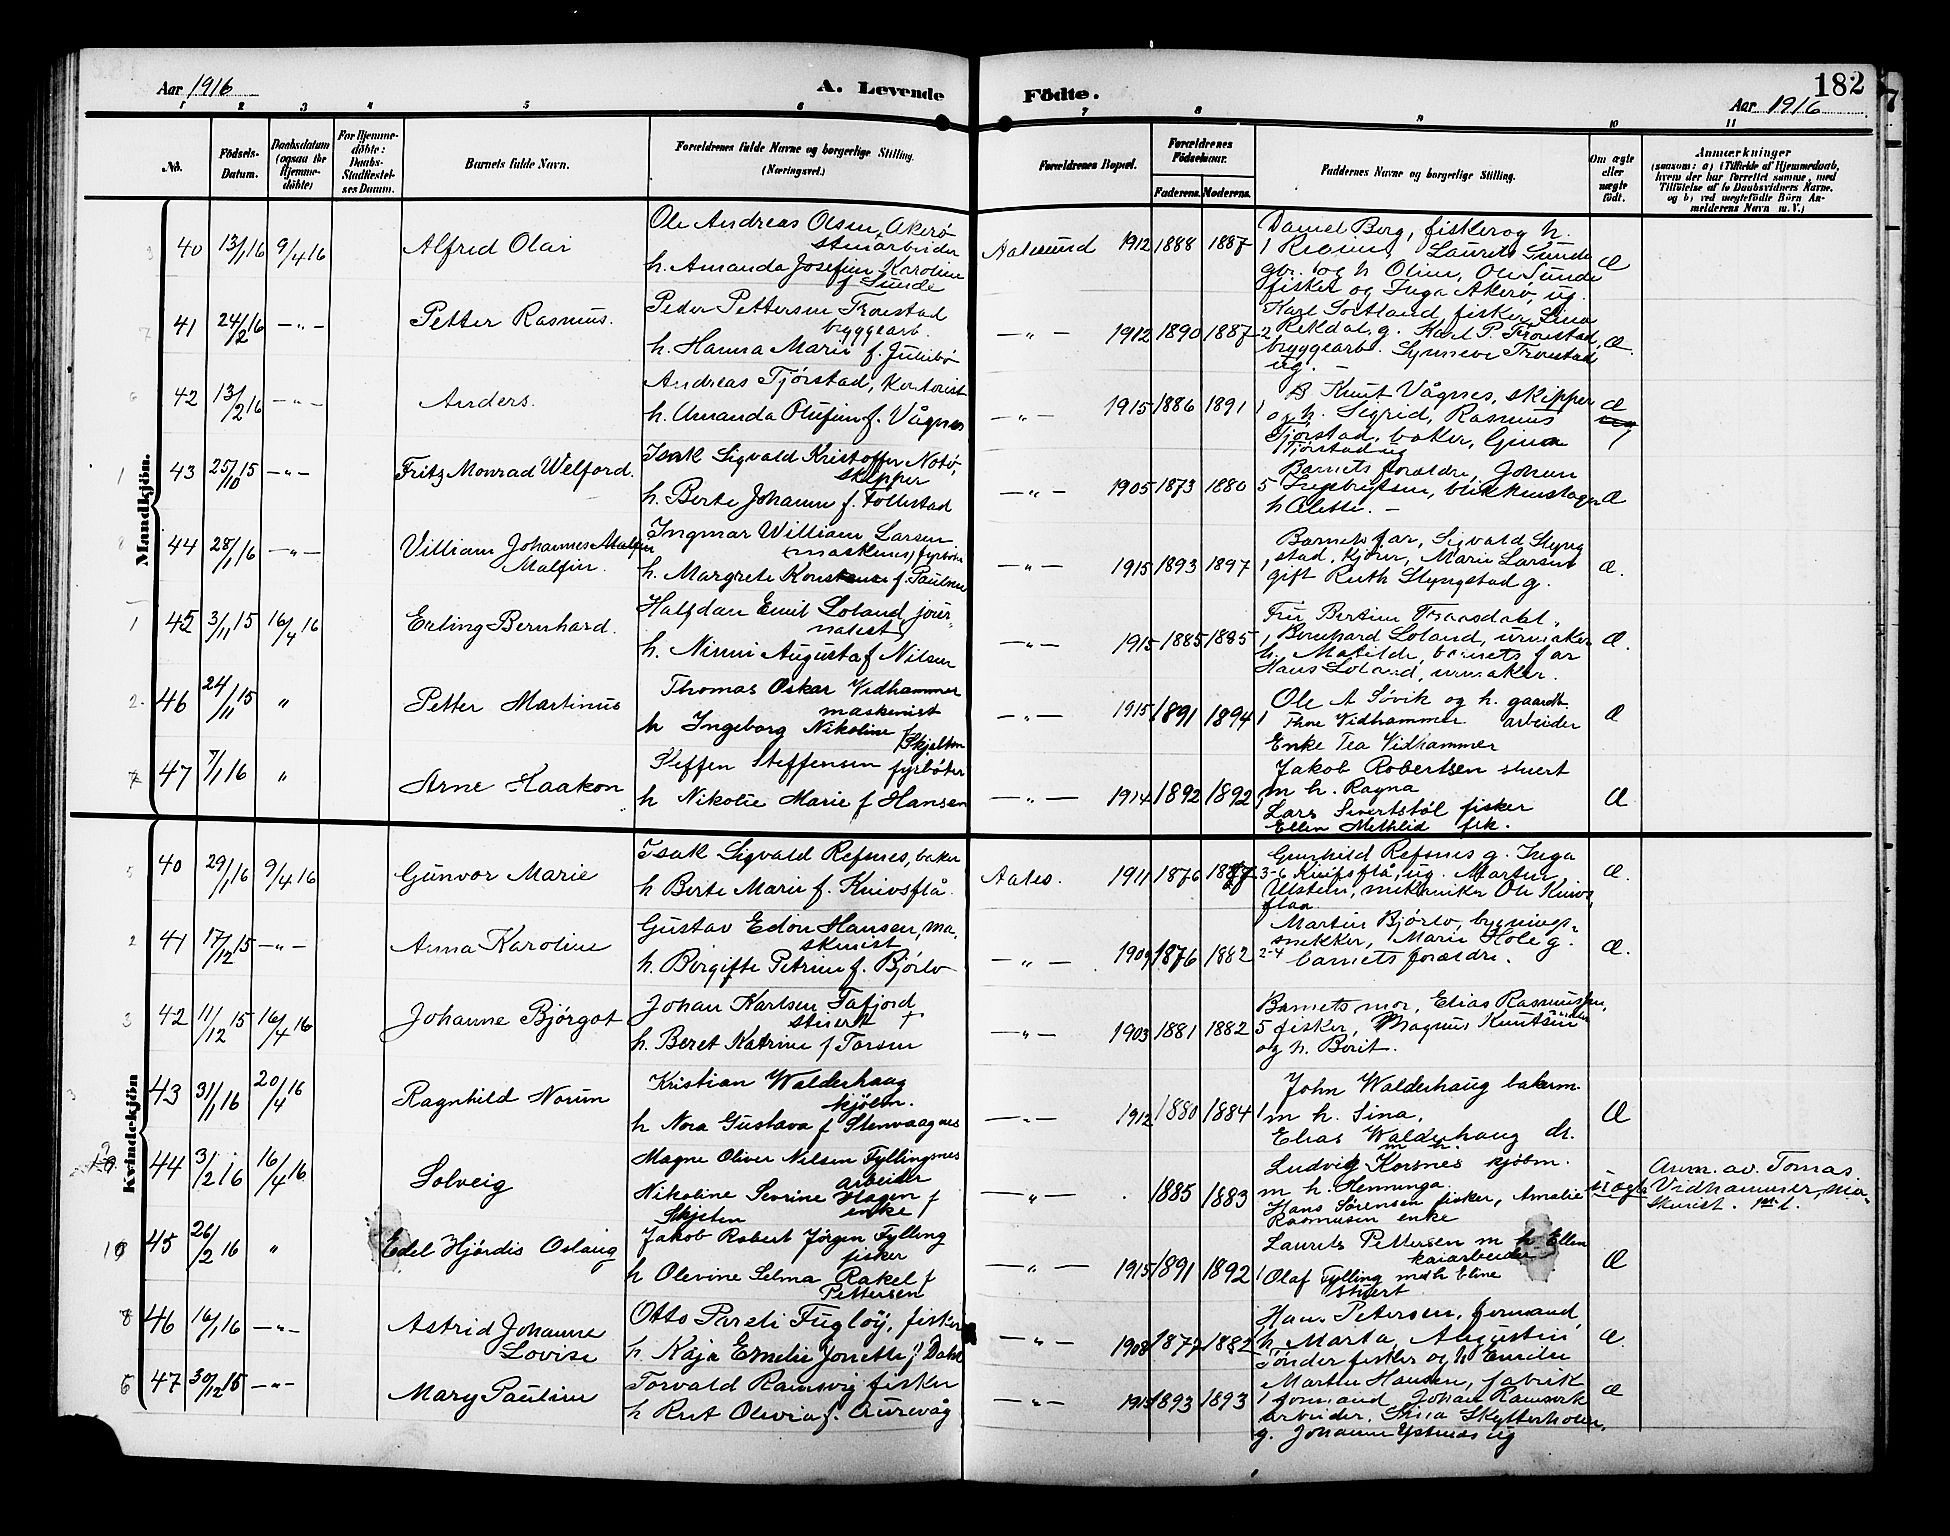 Aar 1916
A. Levende
Födte.
182
Aar 1916
1 2 3 4 5 6 7 8 9 10 11
No.
Födsels-Datum.
Daabsdatum (ogsaa for Hjemme-döbte)
For Hjemme-döbte: Daabs-Stadfæstel-ses Datum.
Barnets fulde Navn.
Forældrenes fulde Navne og borgerlige Stilling. (Næringsvei.)
Forældrenes Bopæl.
Forældrenes Födselsaar.
Faderens. Moderens.
Faddernes Navne og borgerlige Stilling.
Om ægte eller uægte födt.
Anmærkninger
(saasom: a) i Tilfælde af Hjemmedaab,
hvem der har forrettet samme, med
Tilföielse af to Daabsvidners Navne.
og b) ved uægtefödte Börn An-
melderens Navn m. V.)
Mandkjön.
40 13/1 16 9/4 16 Alfred Olai
Ole Andreas Olsen Akerö
stenarbeider
h. Amanda Josefine Karoline
f Sunde
Aalesund 1912 1888 1887
Daniel Berg, fisker og h.
1 Regine, Laurits Sunde
gbr. og h Oline, Ole Sunde
fisker og Inga Akerö, ug.
Æ
41 24/2 16 -"- Petter Rasmus.
Peder Pettersen Tronstad
byggearb.
h. Hanna Marie f. Julibö
-"- 1912 1890 1887
Karl Sortland fisker, Lina
2 Rekdal, g. Karl P. Tronstad,
byggearb. Synneve Tronstad
ug. -
Æ.
42 13/2 16 -"- Anders.
Andreas Tjörstad, kontorist
h. Amanda Olufine f. Vågnes
-"- 1915 1886 1891
B Knut Vågnes, skipper
1 og h. Sigrid, Rasmus
Tjörstad, baker, Gina
Tjörstad ug
Æ
43 25/10 15 -"- Fritz Monrad Welford.
Isak Sigvald Kristoffer Notö,
skipper
h. Berte Johanne f. Follestad
-"- 1905 1873 1880
Barnets forældre, Johan
5 Ingebrigtsen, blikkenslager
h Alette. -
Æ
44 28/1 16 -"- Villiam Johannes Malfin
Malfin.
Ingmar William Larsen
(maskinis) fyrböter
h. Margrete Konstanse f. Paulsen
-"- 1915 1893 1897
Barnets far, Sigvald Slyng
stad, kjörer, Marie Larsen
1 gift Ruth Slyngstad g.
Æ.
45 3/11 15 16/4 16 Erling Bernhard.
Halfdan Emil Loland, jour-
nalist
h. Ninni Augusta f Nilsen
-"- 1915 1885 1885
Fru Bertine Tomasdahl,
1 Bernhard Loland, urmaker
h. Matilde, barnets far
Hans Loland, urmaker.
Æ.
46 24/11 15 " Petter Martinus
Thomas Oskar Vidhammer
maskinist
h Ingeborg Nikoline f Skjelten
-"- 1915 1891 1894
Ole A Sövik og h. gaardb.
1 Thne Vidhammer arbeider
Enke Tea Vidhammer
Æ
47 7/1 16 " Arne Haakon
Steffen Steffensen fyrböter
h Nikolie Marie f Hansen
-"- 1914 1892 1892
Jakob Robertsen stuert
1 m h. Ragna
Lars Sivertstöl fisker
Ellen Methlid frk.
Æ
Kvindekjön
40 29/1 16 9/4 16 Gunvor Marie
Isak Sigvald Refsnes, baker
h Berte Marie f. Knivsflå.
Aales. 1911 1876 1887
Gunhild Refsnes g. Inga
3-6 Knivsflå, ug. Martin
Ulstein, mekaniker Ole Knivs
flaa
Æ.
41 17/12 15 -"- Anna Karoline
Gustav Edon Hansen, ma-
skinist
h. Borgifte Petrine f. Björlo
-"- 1909 1876 1882
Martin Björlo, bygnings-
snekker, Marie Hole g.
2-4 barnets forældre.
Æ.
42 11/12 15 16/4 16 Johanne Björgot
Johan Karlsen Tafjord
stuert +
h. Beret Katrine f Torsen
-"- 1903 1881 1882
Barnets mor, Elias Rasmussen,
5 fisker, Magnus Knutsen
og h. Berit.
43 31/1 16 20/4 16 Ragnhild Norun
Kristian Walderhaug
kjöbm.
h Nora Gustava f Stenvaagnes
-"- 1912 1880 1884
John Walderhaug bakerm.
1 m h. Sina,
Elias Walderhaug dr.
m h.
Æ
44 3/2 16 16/4 16 Solveig
Magne Oliver Nilsen Fyllingsnes
arbeider
Nikoline Sevrine Hagen f
Skjelten enke
-"- 1885 1883
Ludvig Korsnes kjöbm.
m h. Henninga.
Hans Sörensen fisker, Amalie
Rasmusen enke
uægte
Anm. av. Tomas
Vidhammer, ma-
skinist.
45 26/2 16 " Edel Hjördis Oslaug
Jakob Robert Jörgen Fylling
fisker
h Olevine Selma Rakel f
Pettersen
-"- 1915 1891 1892
Laurits Pettersen m h Ellen
kaiarbeider
1 Olaf Fylling m h Eline
stuert
Æ
46 16/1 16 -"- Astrid Johanne
Lovise
Otto Pareli Fuglöy, fisker
h Kaja Emelie Jonette f Dahl
-"- 1908 1877 1882
Hans Petersen, formand
h Marta, Augustin
Tönder fisker og h Emilie
Æ.
47 30/12 15 -"- Mary Pauline
Torvald Ramsvig fisker
h Rut Olevia f. Aurevåg
-"- 1915 1893 1893
Martin Hansen, fabrik
1 formand Johan Ramsvik
arbeider. Stina Skytterholm,
g. Johanne Ystenes ug
Æ